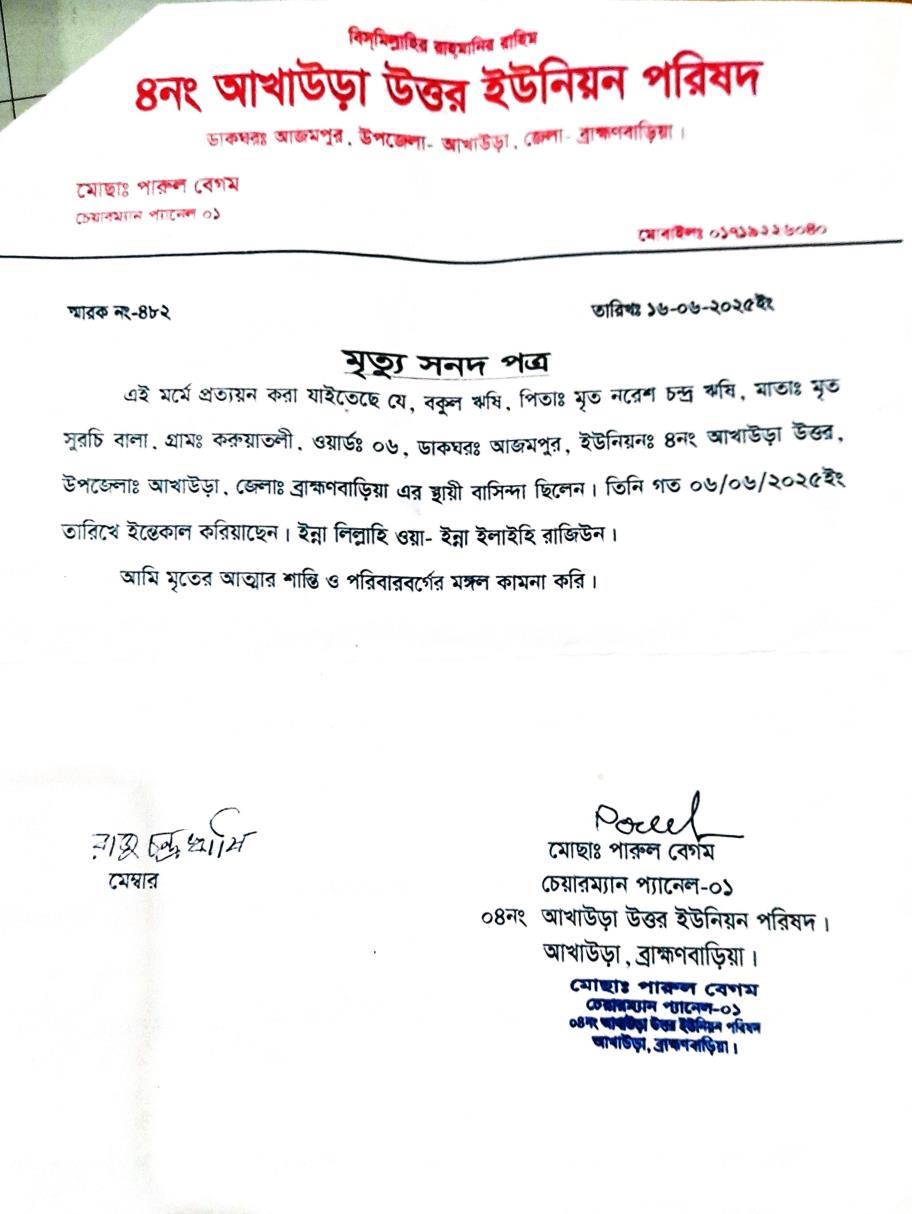 বিস্‌মিল্লাহির রাহ্‌মানির রাহিম
৪নং আখাউড়া উত্তর ইউনিয়ন পরিষদ
ডাকঘরঃ আজমপুর, উপজেলা- আখাউড়া, জেলা- ব্রাহ্মণবাড়িয়া।
মোছাঃ পারুল বেগম
চেয়ারম্যান প্যানেল ০১
মোবাইলঃ
স্মারক নং-৪৮২
তারিখঃ ১৬-০৬-২০২৫ইং
মৃত্যু সনদ পত্র
এই মর্মে প্রত্যয়ন করা যাইতেছে যে, বকুল ঋষি, পিতাঃ মৃত নরেশ চন্দ্র ঋষি, মাতাঃ মৃত
সুরচি বালা, গ্রামঃ কল্যায়াতলী, ওয়ার্ডঃ ০৬, ডাকঘরঃ আজমপুর, ইউনিয়নঃ ৪নং আখাউড়া উত্তর,
উপজেলাঃ আখাউড়া, জেলাঃ ব্রাহ্মণবাড়িয়া এর স্থায়ী বাসিন্দা ছিলেন। তিনি গত ০৬/০৬/২০২৫ইং
তারিখে ইন্তেকাল করিয়াছেন। ইন্না লিল্লাহি ওয়া- ইন্না ইলাইহি রাজিউন।
আমি মৃতের আত্মার শান্তি ও পরিবারবর্গের মঙ্গল কামনা করি।
চন্দ্র ঋষি
মেম্বার
মোছাঃ পারুল বেগম
চেয়ারম্যান প্যানেল-০১
০৪নং আখাউড়া উত্তর ইউনিয়ন পরিষদ।
আখাউড়া, ব্রাহ্মণবাড়িয়া।
মোছাঃ পারুল বেগম
চেয়ারম্যান প্যানেল-০১
০৪নং আখাউড়া উত্তর ইউনিয়ন পরিষদ
আখাউড়া, ব্রাহ্মণবাড়িয়া।